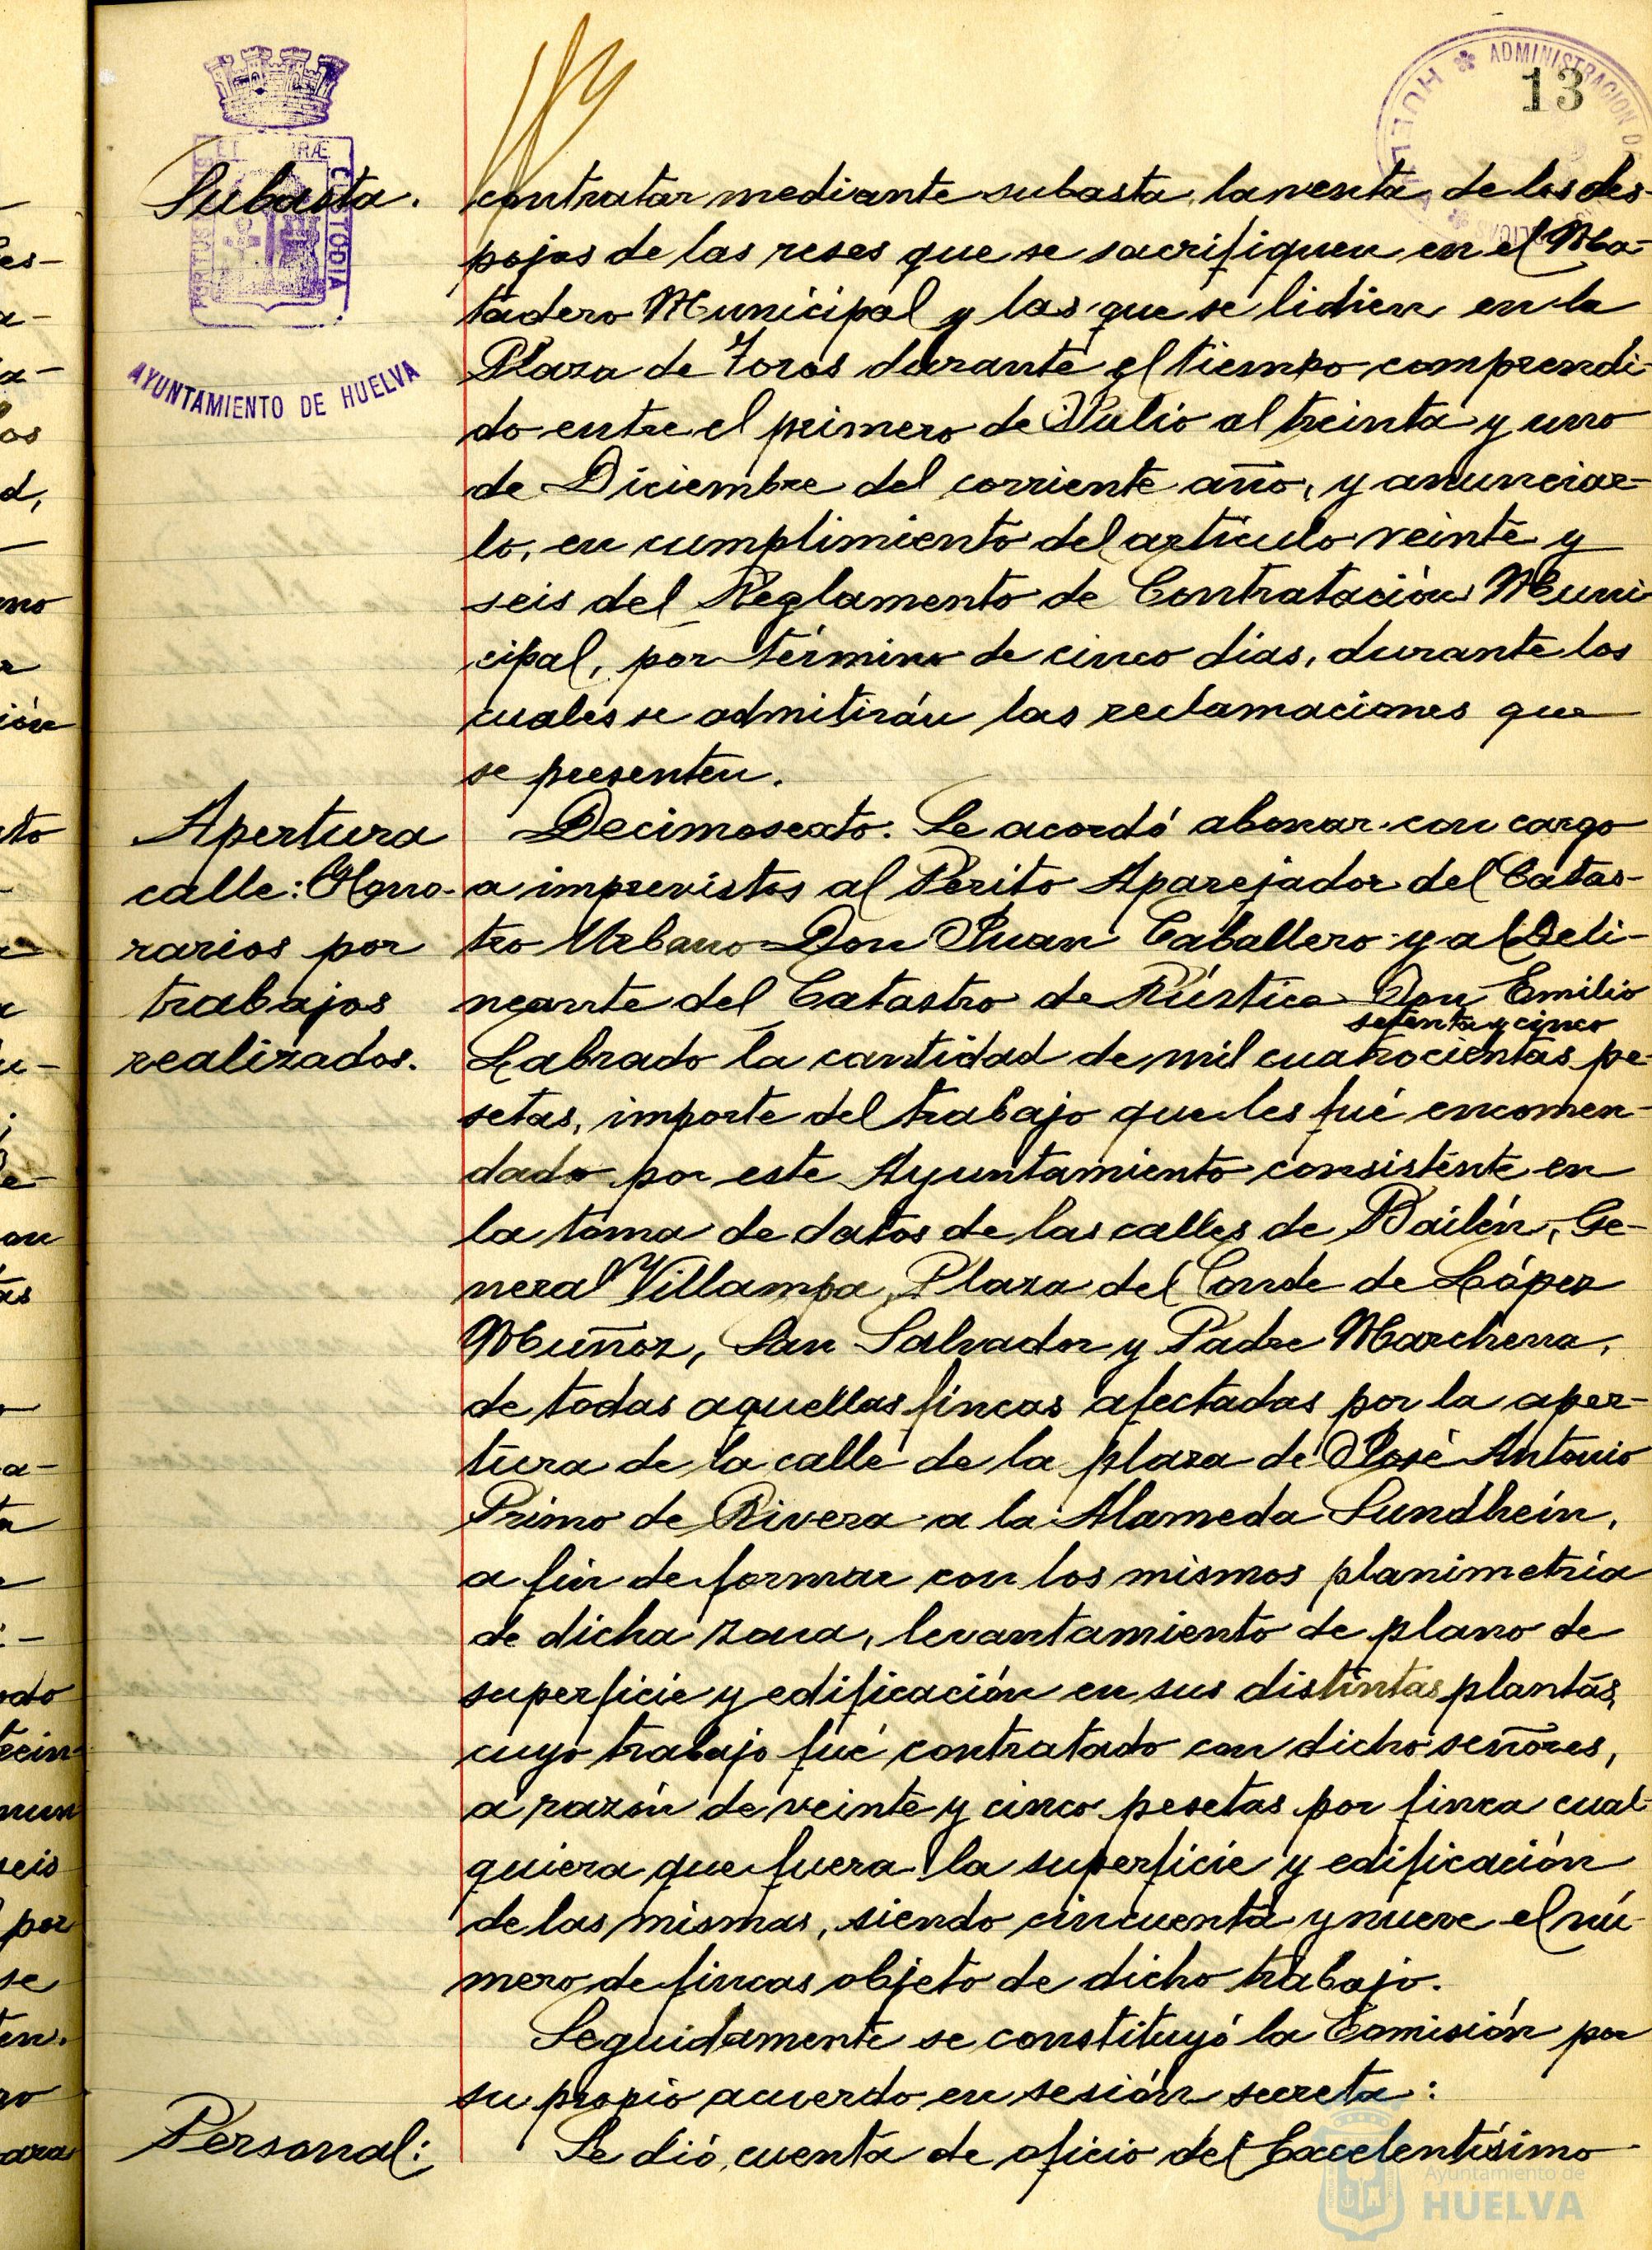 13
ADMINISTRACION DE
HUELVA
PORTUS
ET
TERRÆ
CUSTODIA
AYUNTAMIENTO DE HUELVA
Subasta.
contratar mediante subasta, la venta de los des-
pojos de las reses que se sacrifiquen en el Ma-
tadero Municipal y las que se lidien en la
Plaza de Toros durante el tiempo comprendi-
do entre el primero de Julio al treinta y uno
de Diciembre del corriente año, y anunciar-
lo, en cumplimiento del artículo veinte y
seis del Reglamento de Contratación Muni
cipal, por término de cinco dias, durante los
cuales se admitirán las reclamaciones que
se presenten.
Apertura
calle: Hono-
rarios por
trabajos
realizados.
Decimosexto. Se acordó abonar con cargo
a imprevistos al Perito Aparejador del Catas-
tro Urbano Don Juan Caballero y al Deli-
neante del Catastro de Rústica Don Emilio
setenta y cinco
Labrado la cantidad de mil cuatrocientas pe-
setas, importe del trabajo que les fué encomen-
dado por este Ayuntamiento consistente en
la toma de datos de las calles de Bailén, Ge-
neral Villampa, Plaza del Conde de López
Muñoz, San Salvador y Padre Marchena,
de todas aquellas fincas afectadas por la aper-
tura de la calle de la plaza de José Antonio
Primo de Rivera a la Alameda Sundhein,
a fin de formar con los mismos planimetria
de dicha zona, levantamiento de plano de
superficie y edificación en sus distintas plantas,
cuyo trabajo fué contratado con dicho señores,
a razón de veinte y cinco pesetas por finca cual-
quiera que fuera la superficie y edificación
de las mismas, siendo cincuenta y nueve el nú-
mero de fincas objeto de dicho trabajo.
Seguidamente se constituyó la Comisión por
su propio acuerdo en sesión secreta:
Personal:
Se dió cuenta de oficio del Excelentísimo
Ayuntamiento de
HUELVA